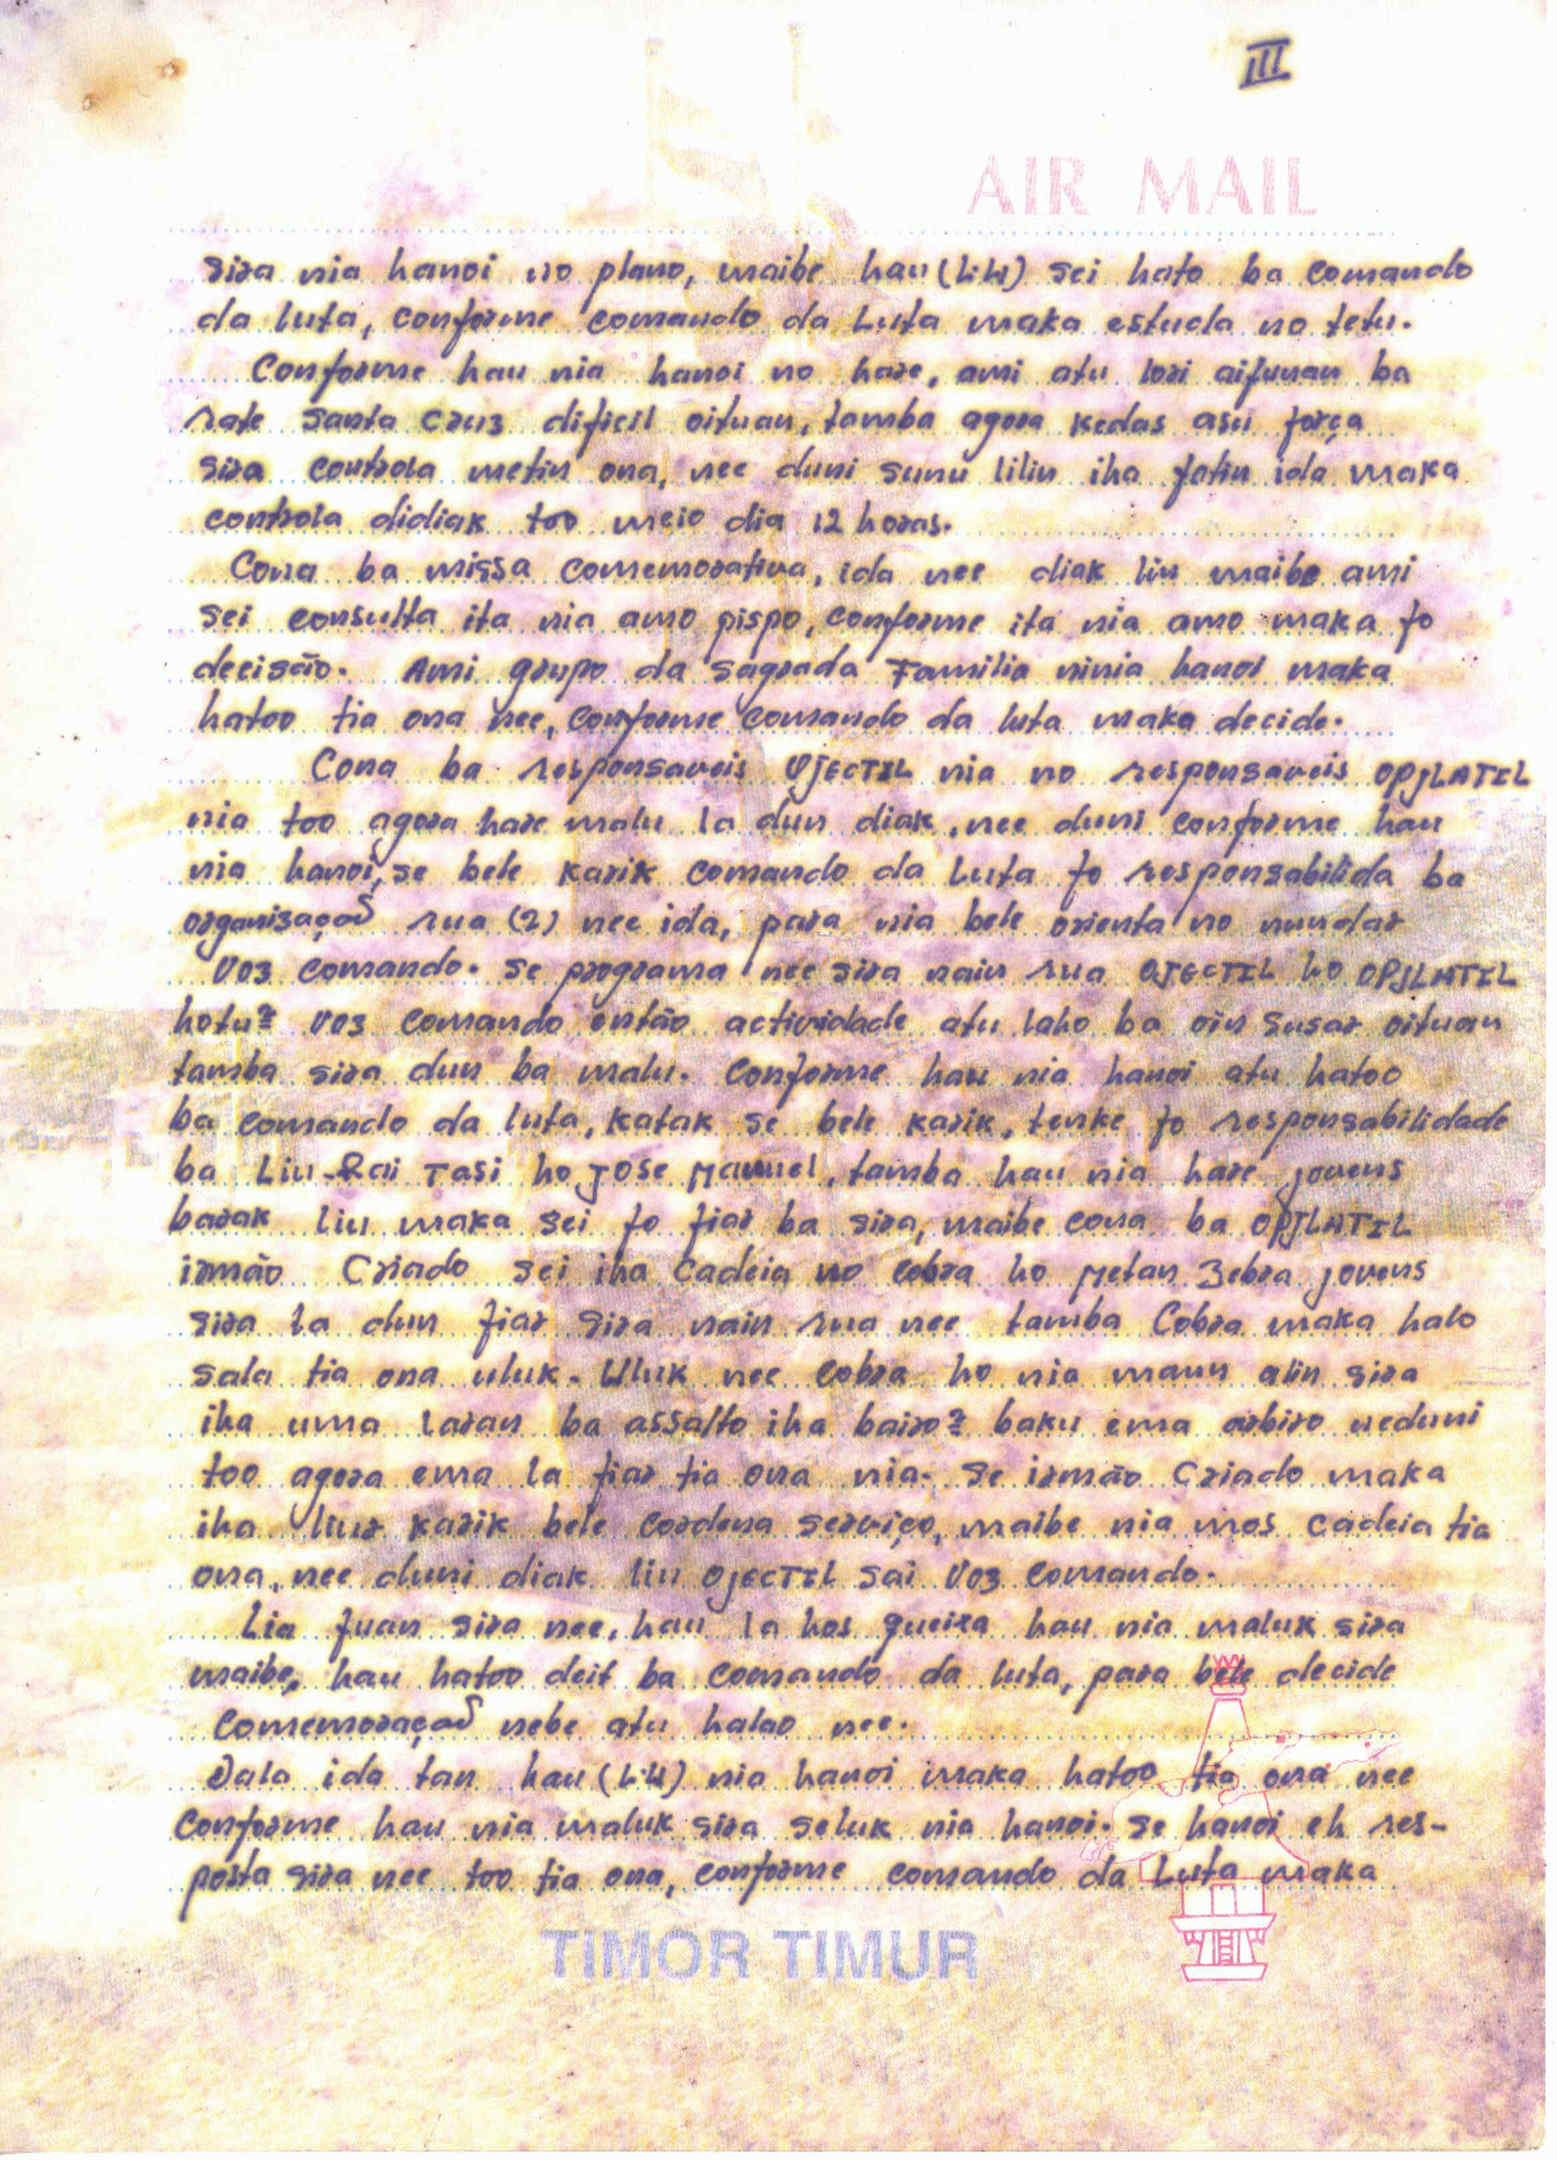 III
AIR MAIL
sira nia hanoi no plano, maibe hau (L:4) sei hato ba comando
da luta, conforme comando da Luta maka estuda no tetu.
Conforme hau nia hanoi no hare, ami atu lori aifunan ba
rate Santa Cruz dificil oituan, tamba agora kedas asu força
sira controla metin ona, nee duni sunu lilin iha fatin ida maka
controla didiak too meio dia 12 horas.
Cona ba missa comemorativa, ida nee diak liu maibe ami
sei consulta ita nia amo pispo, conforme ita nia amo maka fo
decisão. Ami grupo da Sagrada Familia ninia hanoi maka
hatoo tia ona nee, conforme comando da luta maka decide.
Cona ba responsaveis OJECTIL nia no responsaveis OPJLATIL
nia too agora hare malu la dun diak, nee duni conforme hau
nia hanoi, se bele karik comando da Luta fo responsabilida ba
organisaçaõ rua (2) nee ida, para nia bele orienta no nundar
Voz comando. Se programa nee sira nain rua OJECTIL ho OPJLATIL
hotu² voz comando então actividade atu laho ba oin susar oituan
tamba sira dun ba malu. Conforme hau nia hanoi atu hatoo
ba comando da luta, katak se bele karik, tenke fo responsabilidade
ba Liu-Rai Tasi ho Jose Manuel, tamba hau nia hare jovens
barak liu maka sei fo fiar ba sira, maibe cona ba OPJLATIL
irmão Criado sei iha Cadeia no Cobra ho Metan Zebra jovens
sira la dun fiar sira nain rua nee tamba Cobra maka halo
sala tia ona uluk. Uluk nee Cobra ho nia maun alin sira
iha uma laran ba assalto iha bairo² baku ema arbiro neduni
too agora ema la fiar tia ona nia. Se irmão Criado maka
iha liur karik bele cordena serviço, maibe nia mos cadeia tia
ona, nee duni diak liu OJECTIL sai Voz Comando.
Lia fuan sira nee, hau la hos queixa hau nia maluk sira
maibe, hau hatoo deit ba Comando da luta, para bele decide
Comemoraçaõ nebe atu halao nee.
Dala ida tan hau (L:4) nia hanoi maka hatoo tia ona nee
Conforme hau nia maluk sira seluk nia hanoi. Se hanoi eh res-
posta sira nee too tia ona, conforme comando da Luta maka
TIMOR TIMUR